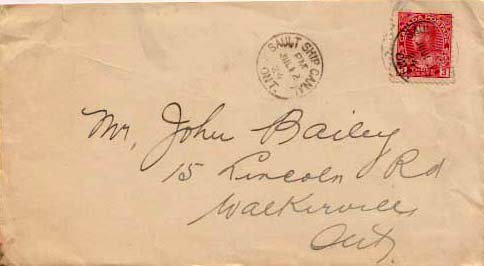 SAULT SHIP CANAL
PM
JUL 12
24
ONT.
CANADA POSTAGE
THREE
3
Mr. John Bailey
15 Lincoln Rd
Walkerville
Ont.